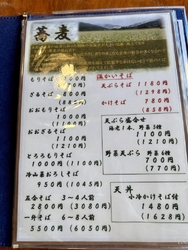 蕎麦
もりそば
ざるそば
おおもり
とろろもりそば
1000円(1100円)
冷山菜おろしそば
950円(1045円)
五合そば 3〜4人前
2800円(3080円)
一升そば 6〜8人前
5500円(6050円)
温かいそば
天ぷらそば 1180円
(1298円)
かけそば 780円
(858円)
天ぷら盛合せ
海老1本、野菜5種
1100円
(1210円)
野菜天ぷら 野菜6種
700円
(770円)
天丼
小冷かけそば付
1480円
(1628円)